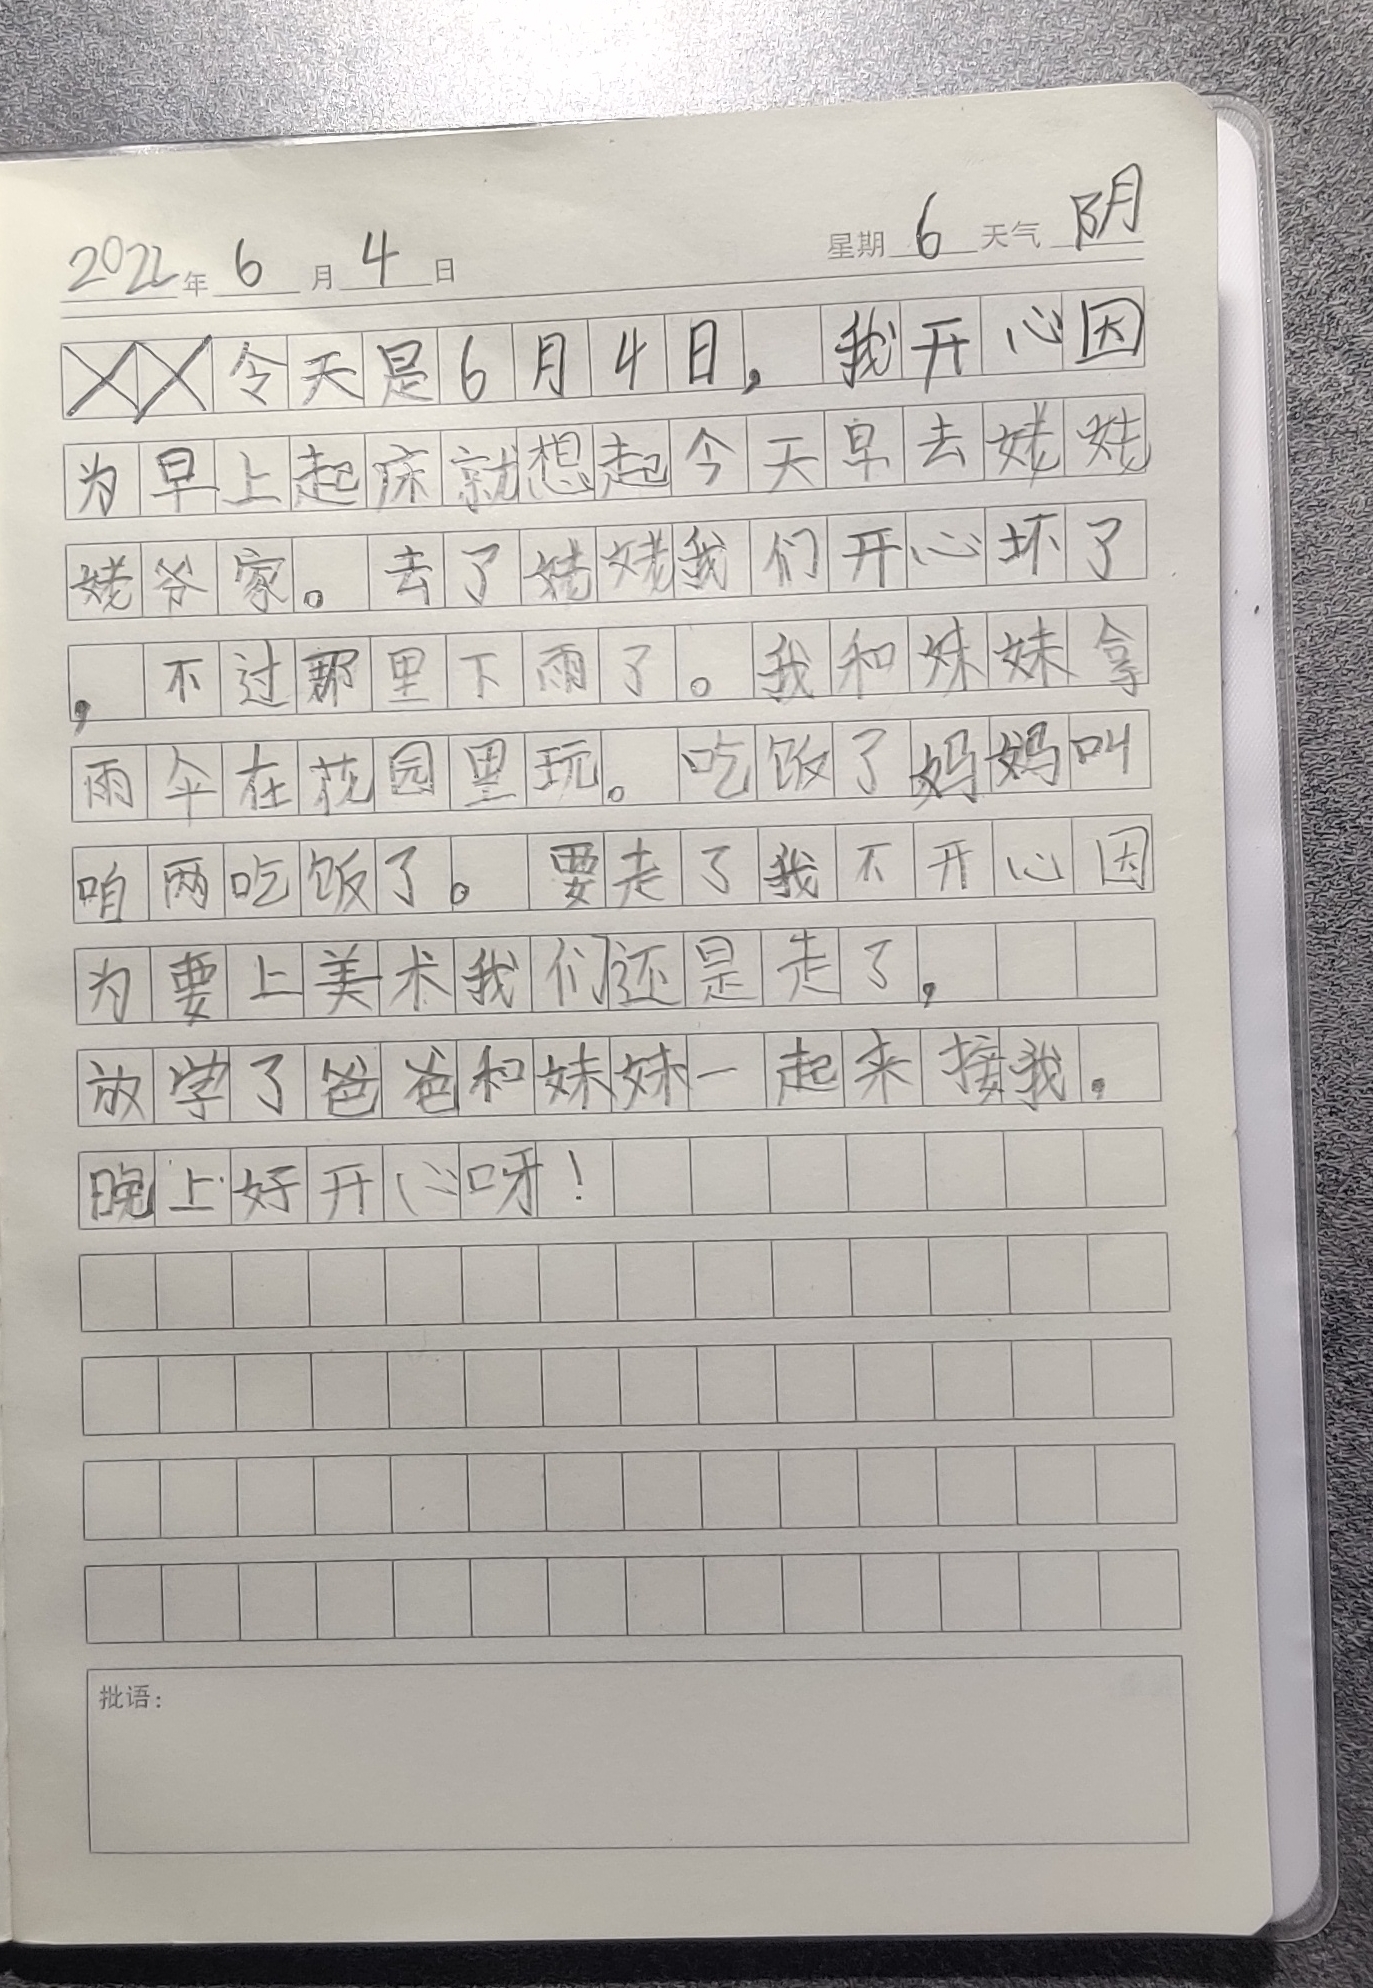 2022年 6 月 4 日 星期 6 天气 阴
今天是6月4日，我开心因
为早上起床就想起今天早去姥姥
姥爷家。去了姥姥我们开心坏了
，不过那里下雨了。我和妹妹拿
雨伞在花园里玩。吃饭了妈妈叫
咱两吃饭了。要走了我不开心因
为要上美术我们还是走了，
放学了爸爸和妹妹一起来接我。
晚上好开心呀！
批语：